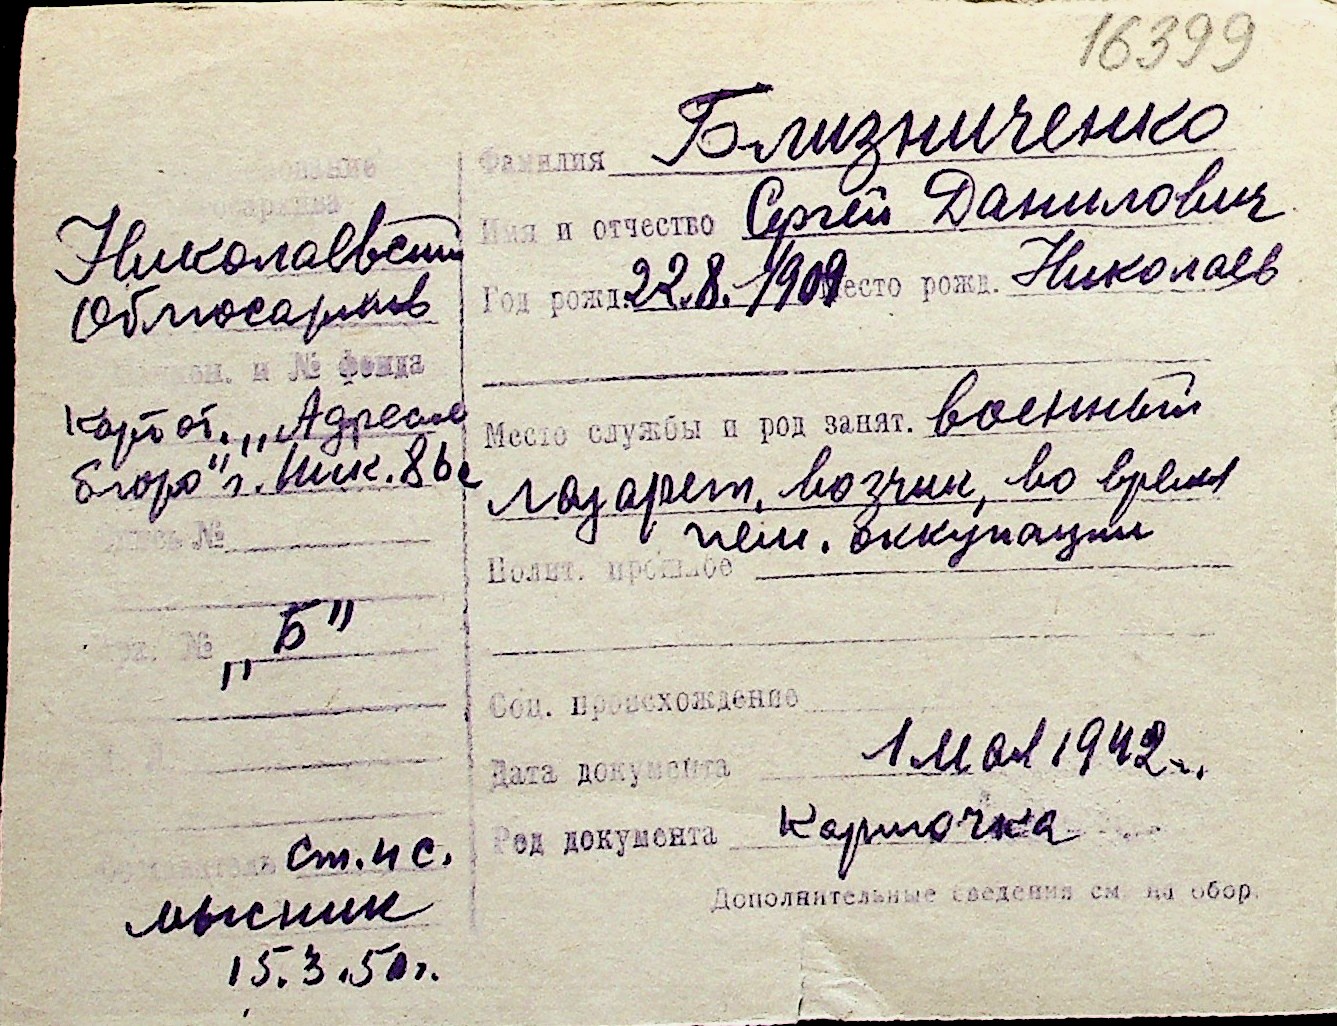 16399
Фамилия Близниченко
Имя и отчество Сергей Данилович
Год рожд. 22.8.1909 Место рожд. Николаев
Место службы и род занят. военный
лазарет, возчик, во время
нем. оккупации
Полит. прошлое
Соц. происхождение
Дата документа 1 мая 1942 г.
Род документа карточка
Дополнительные сведения см. на обор.
Николаевский
Облгосархив
и № фонда
Картот. „Адресное
бюро" г. Ник.
Опись №
№ „Б"
Составитель ст. н с.
мысник
15.3.50 г.